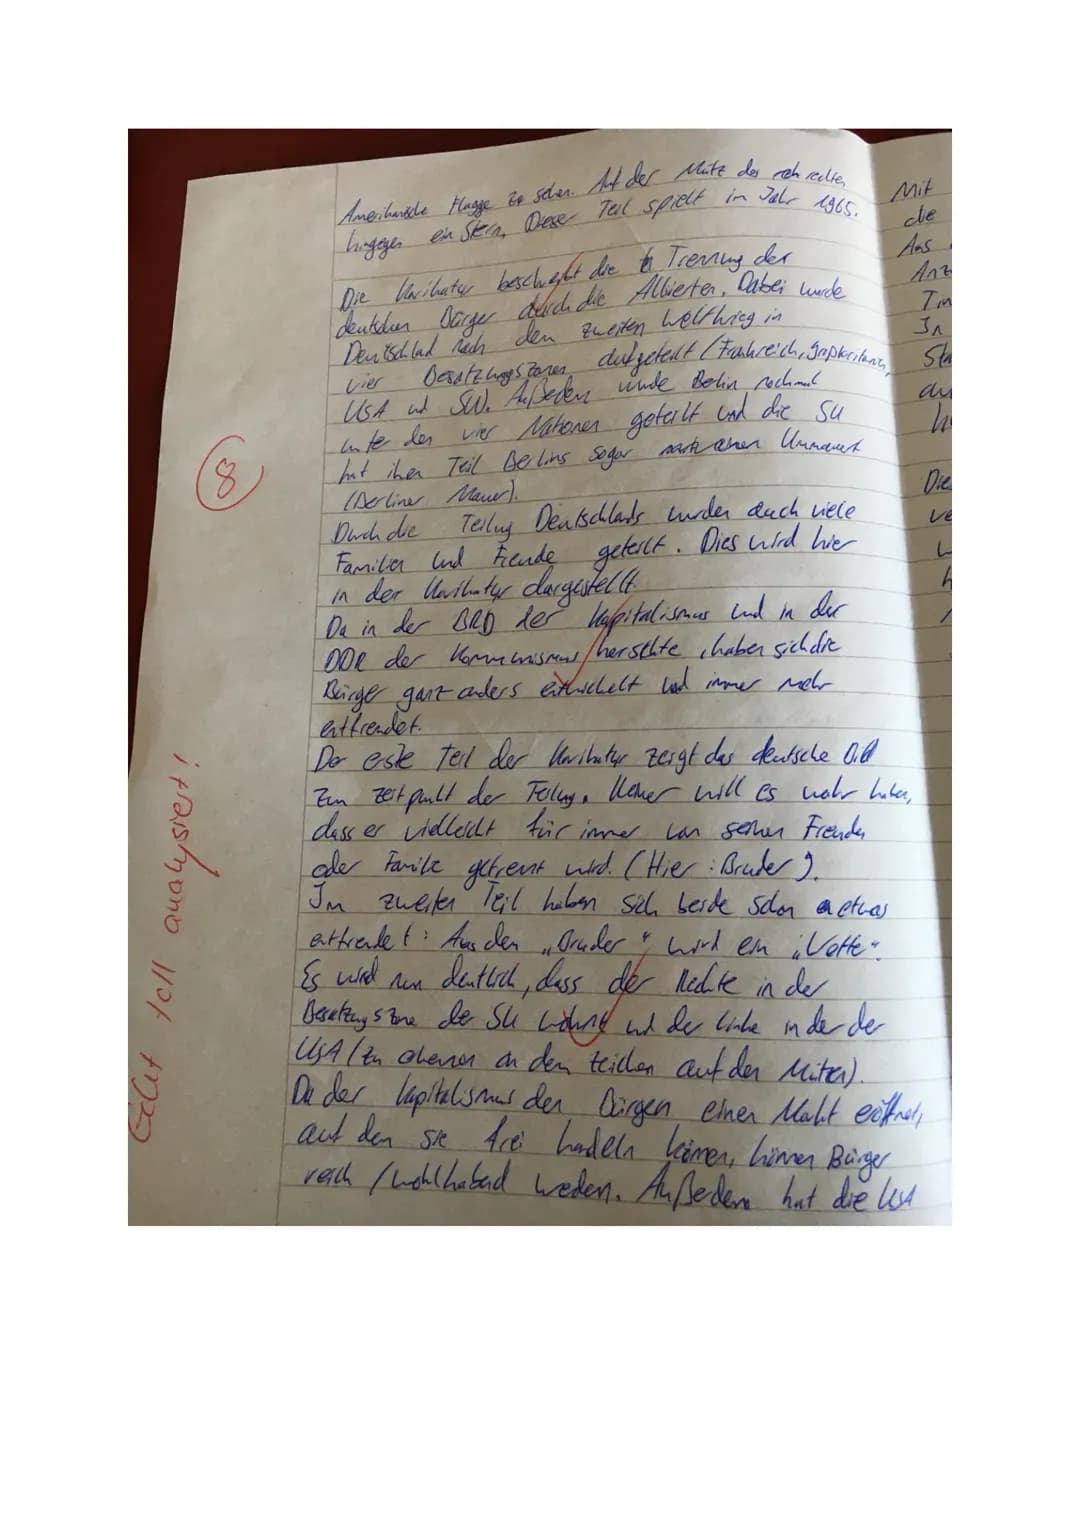 Amerikanische Flagge zu sehen. Auf der Mütze des rechten
hingegen ein Stern. Dieser Teil spielt im Jahr 1965.
Die Karikatur beschreibt die Trennung der
deutschen Bürger durch die Alliierten. Dabei wurde
Deutschland nach dem zweiten Weltkrieg in
vier Besatzungszonen aufgeteilt (Frankreich, Großbritannien,
USA und SU). Außerdem wurde Berlin nochmal
unter den vier Nationen geteilt und die SU
hat ihren Teil Berlins sogar
(Berliner Mauer).
Durch die Teilung Deutschlands wurden auch viele
Familien und Freunde geteilt. Dies wird hier
in der Karikatur dargestellt.
Da in der BRD der Kapitalismus und in der
DDR der Kommunismus herschte, haben sich die
Bürger ganz anders entwickelt und immer mehr
entfremdet.
Der erste Teil der Karikatur zeigt das deutsche Bild
zum Zeitpunkt der Teilung. Keiner will es wahr haben,
dass er vielleicht für immer von seinen Freunden
oder Familie getrennt wird. (Hier: Bruder).
Im zweiten Teil haben sich beide schon etwas
entfremdet: Aus dem „Bruder" wird ein „Vetter".
Es wird nun deutlich, dass der Rechte in der
Besatzungszone der SU wohnt und der linke in der der
USA (zu erkennen an dem Zeichen auf den Mützen).
Da der Kapitalismus den Bürgern einen Markt eröffnet,
auf dem sie frei handeln können, können Bürger
reich / wohlhabend werden. Außerdem hat die USA
8
Echt toll analysiert!
Mit
die
Aus
In